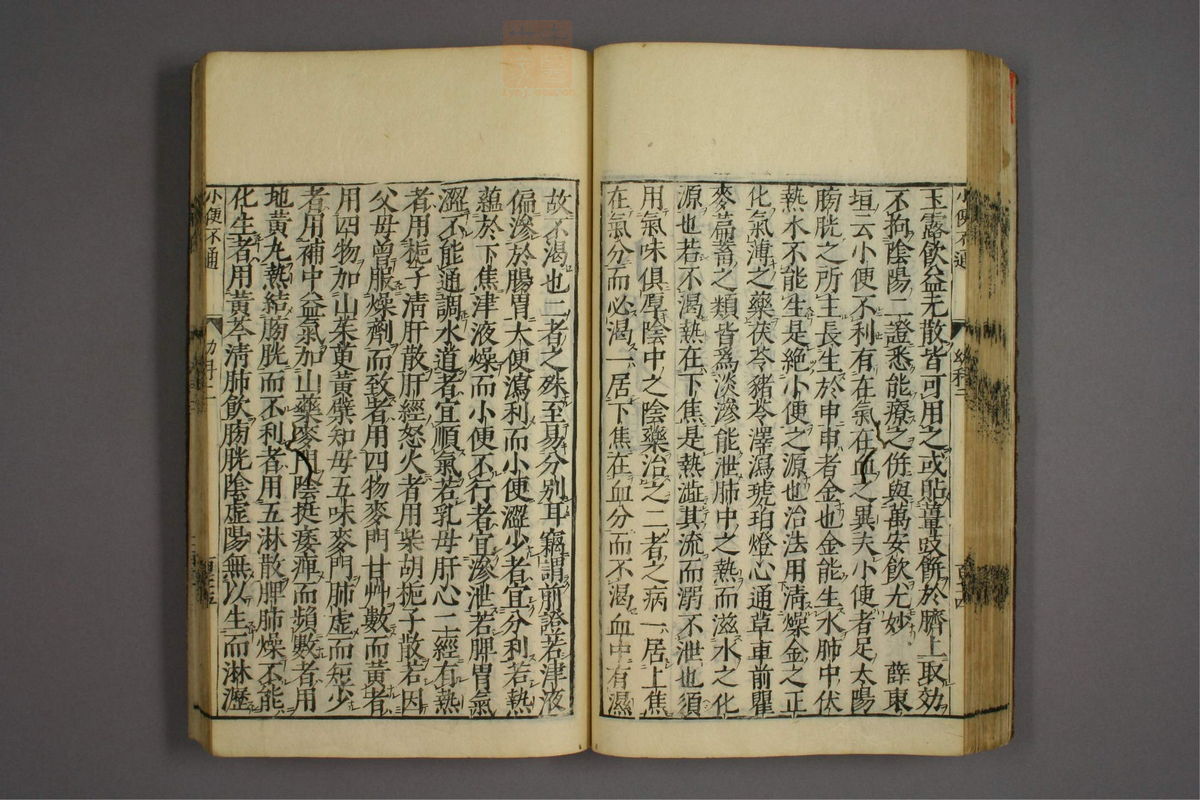 玉露飲益元散皆可用之或貼葦豉餅於臍上取効
不狥陰陽二證悉能療之併與萬安飲尤妙 薛東
垣云小便不利有在氣在血之異夫小便者足太陽
膀胱之所主長生於申申者金也金能生水肺中伏
熱水不能生是絶小便之源也治法用清燥金之正
化氣薄之藥茯苓豬苓澤瀉琥珀燈心通草車前瞿
麥萹蓄之類皆爲淡滲能泄肺中之熱而滋水之化
源也若不渴熱在下焦是熱澁其流而溺不泄也須
用氣味俱厚陰中之陰藥治之二者之病一居上焦
在氣分而必渴一居下焦在血分而不渴血中有濕
小便不通
幼科二
故不渴也二者之殊至易分別耳竊謂前證若津液
偏滲於腸胃大便瀉利而小便澀少者宜分利若熱
蘊於下焦津液燥而小便不行者宜滲泄若脾胃氣
澀不能通調水道者宜順氣若乳母肝心二經有熱
者用梔子清肝散肝經怒火者用柴胡梔子散若因
父母曾服燥劑而致者用四物麥門甘艸數而黃者
用四物加山茱萸黃蘗知母五味麥門肺虚而短少
者用補中益氣加山藥麥門陰挺痿痺而頻數者用
地黃九熱結膀胱而不利者用五淋散脾肺燥不能
化生者用黃芩清肺飲膀胱陰虚陽無以生而淋瀝
小便不通